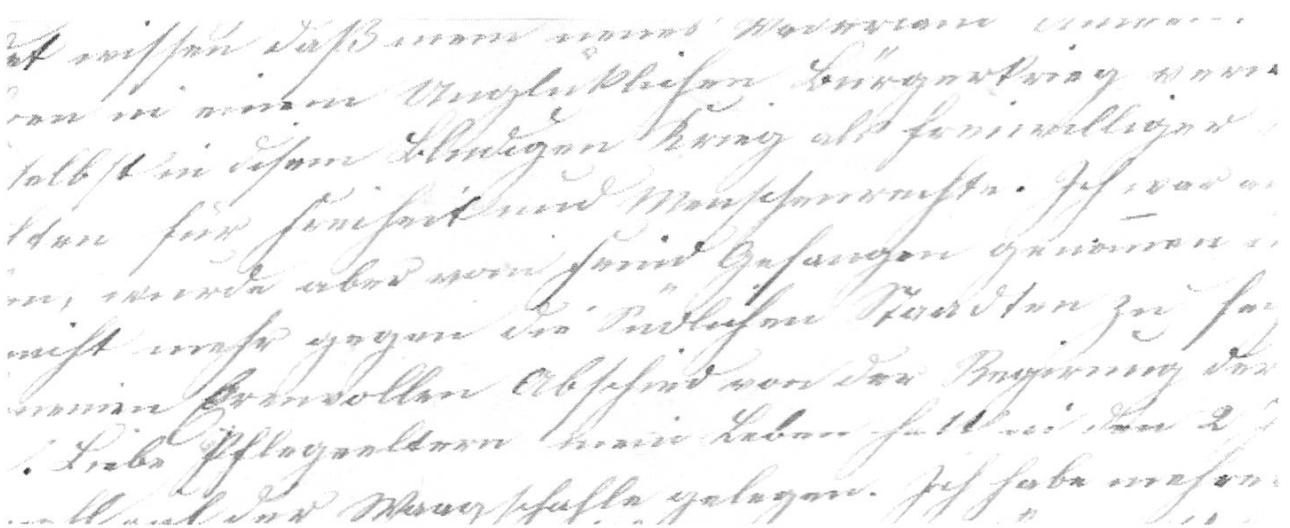 wissen daß mein neues Vaterland Amer
in einem Unglüklichen Bürgerkrieg
selbst in disem Blutigen Krieg als Freiwilliger
für Freiheit und Menschenrechte. Ich war
wurde aber vom Feind Gefangen genomen
nicht mehr gegen die Südlichen Staadten zu
meinen Erenvollen Abschied von der Regirung der
. Liebe Pflegeeltern mein Leben hatt in den 2
mal auf der Waagschahle gelegen. Ich habe mehre